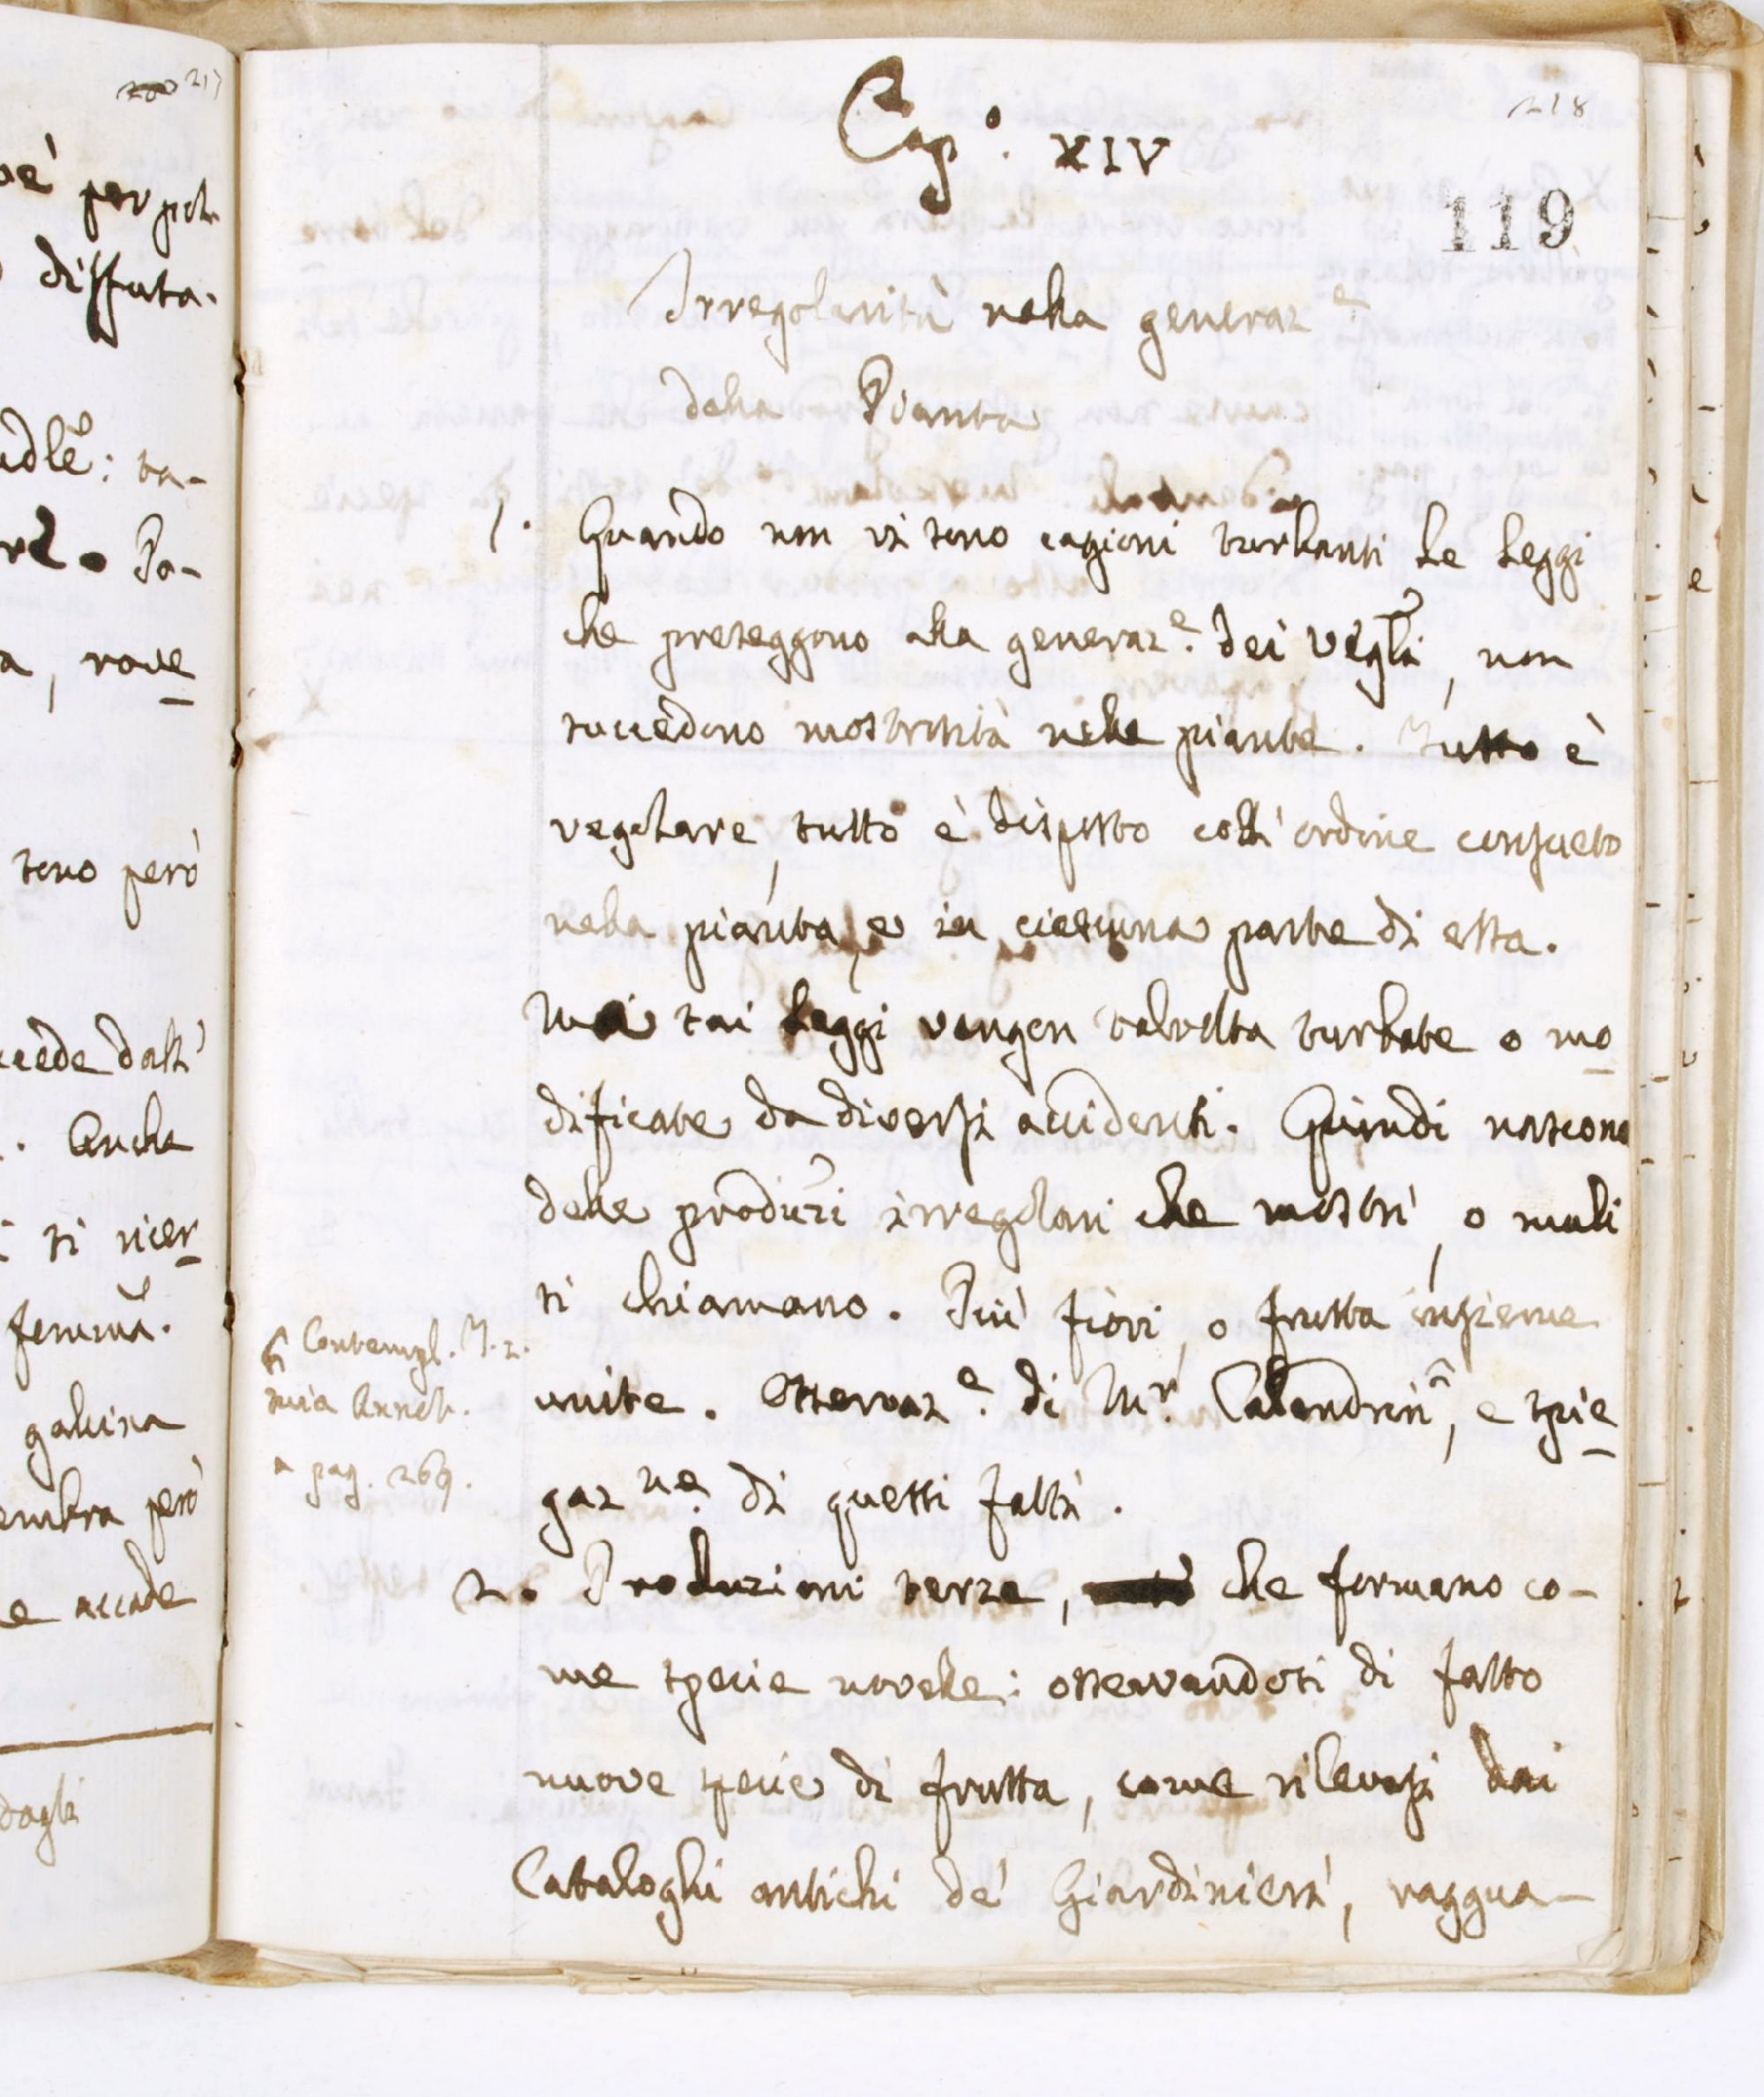 217
vè per pet
disputa.
adlẽ: ta-
Pa-
a, rove
sono però
ccede dall'
. Anche
si ricer
femina.
gallina
embra però
e accade
dagli
218
Cap.º XIV
119
Irregolarità nella generaz.e
della Pianta
1. Quando non vi sono cagioni turbanti le leggi
che preseggono alla generaz.e dei vegli, non
succedono mostrosità nelle piante. Tutto è
regolare, tutto è disposto coll' ordine consueto
nella pianta, e in ciascuna parte di essa.
Mai tai leggi vengon talvolta turbate o mo
dificate da diversi accidenti. Quindi nascono
delle produzi irregolari che mostri, o muli
si chiamano. Più fiori, o frutta insieme
unite. Osservaz.e di Mr. Calandrini, e spie
gaz.ne di questi fatti.
Contempl. T. 2.
mia Annot.
a pag. 269.
2. Produzioni terze, che formano co-
me specie novelle: osservandosi di fatto
nuove specie di frutta, come rilevasi dai
Cataloghi antichi de' Giardinieri, raggua-